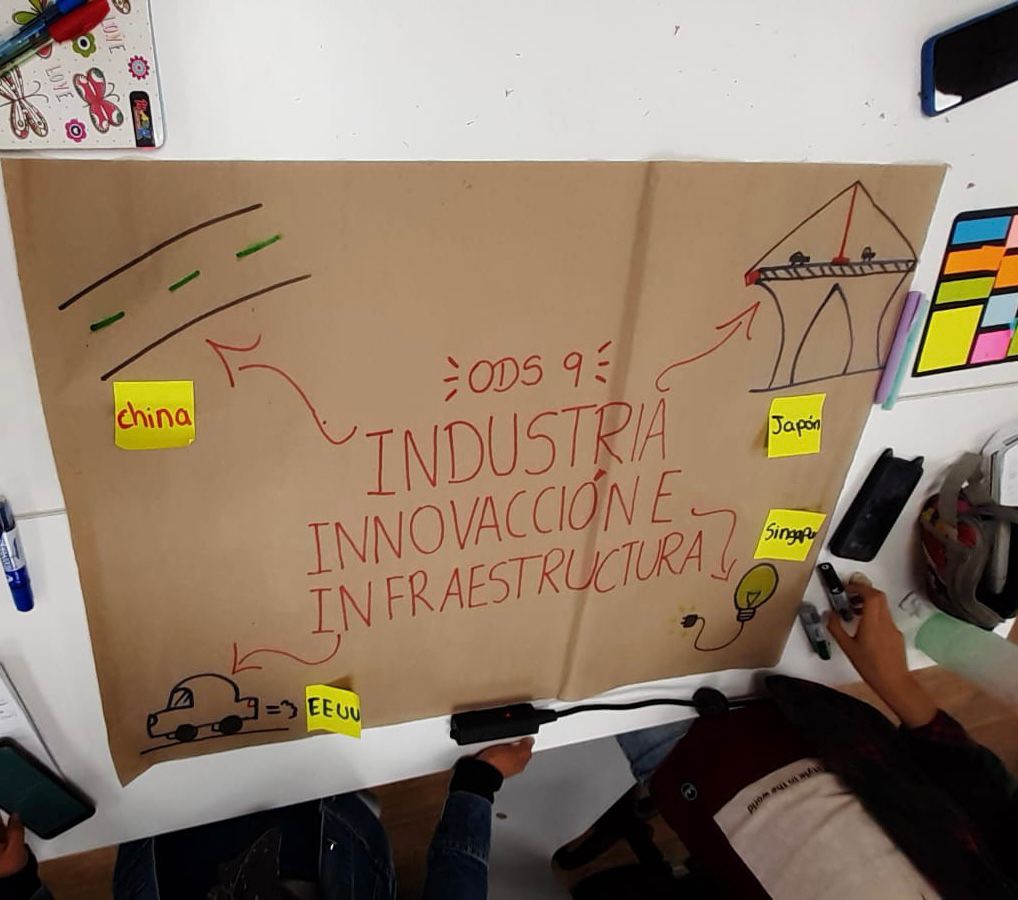 LOVE
LOVE
ODS 9
INDUSTRIA
INNOVACCIÓN E
INFRAESTRUCTURA
china
Japón
EEUU
style in the world